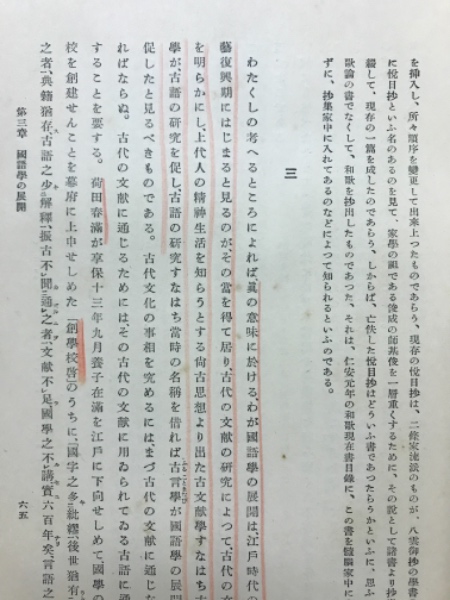 を挿入し、所々順序を變更して出來上つたものであらう、現存の悅目抄は、二條家流派のものが、八雲御抄の學書
に悅目抄といふ名のあるのを見て、家學の祖である俊成の師基俊を一層重くするために、その說として諸書より抄
綴して、現存の一篇を成したのであらう、しからば、亡佚した悅目抄はどういふ書であつたらうかといふに、思ふ
歌論の書でなくして、和歌を抄出したものであつた、それは、仁安元年の和歌現在書目錄に、この書を髓腦家中に
ずに、抄集家中に入れてあるのなどによつて知られるといふのである。
三
わたくしの考へるところによれば、眞の意味に於けるわが國語學の展開は、江戶時代の
藝復興期にはじまると見るのが、その當を得て居り古代の文獻の研究によつて、古代の文
を明らかにし、上代人の精神生活を知らうとする尙古思想より出た古文獻學すなはち古
學が、古語の研究を促し古語の研究すなはち當時の名稱を借れば古言學が國語學の展開
ふるごとまなび
促したと見るべきものである。古代文化の事相を究めるにはまづ古代の文獻に通じな
ればならぬ。古代の文獻に通じるためには、その古代の文獻に用ゐられてゐる古語に通
することを要する。荷田春滿が享保十三年九月養子在滿を江戶に下向せしめて、國學の
校を創建せんことを幕府に上申せしめた「創學校啓」のうちに、「國字之多紕繆、後世猶有
之者、典籍猶存、古語之少解釋、振古不聞通之者、文獻不足、國學之不講、實六百年矣、言語之
第三章 國語學の展開
六五